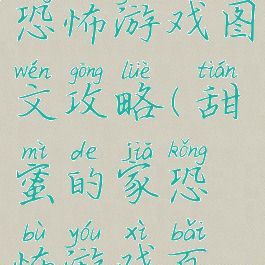 恐怖游戏图
wén gōng lüè tián
文攻略(甜
mì de jiā kǒng
蜜的家恐
bù yóu xì bǎi
怖游戏百